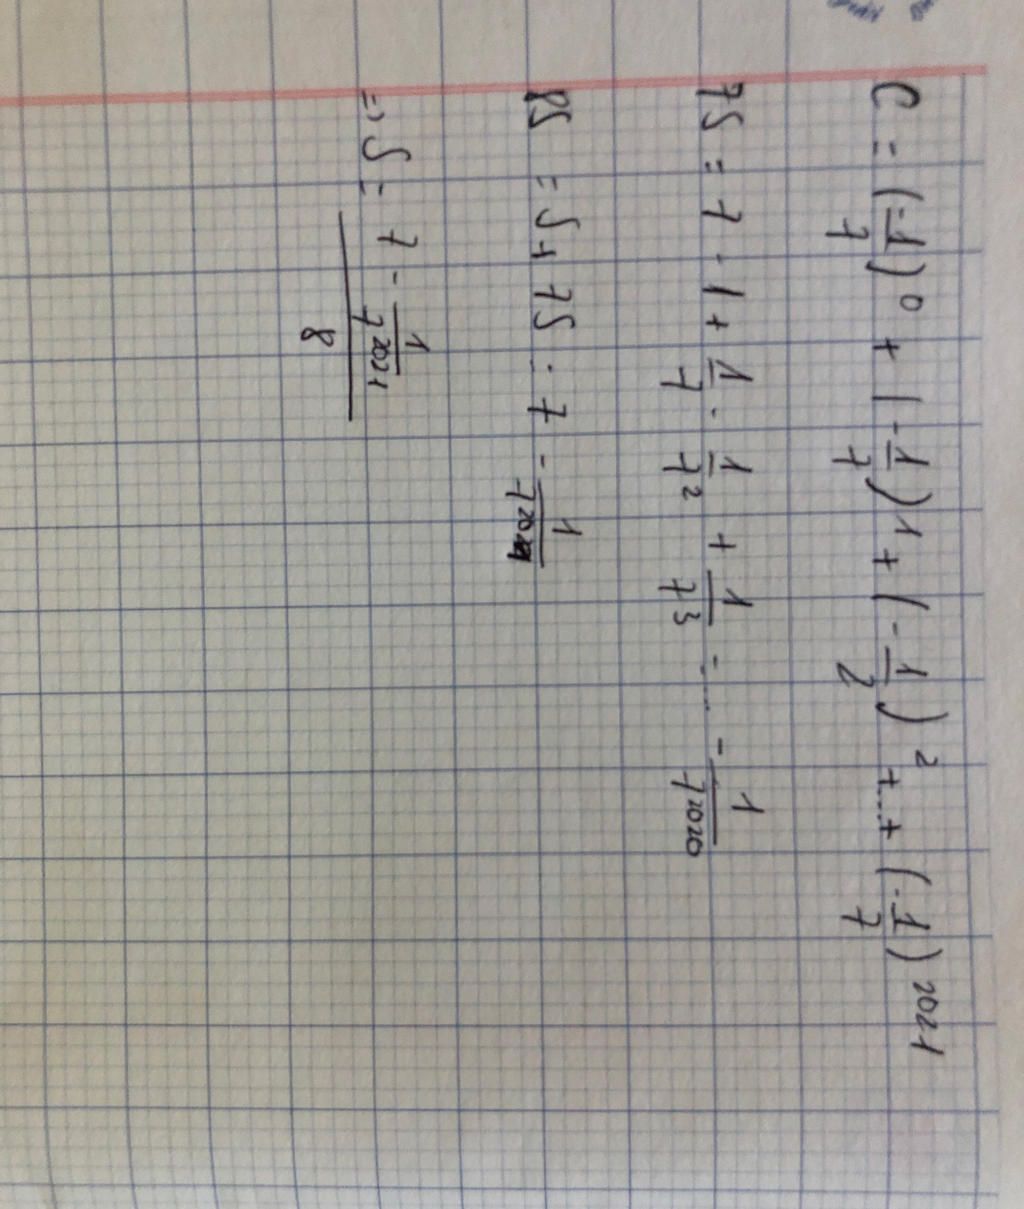 C = (-1/7)^0 + (-1/7)^1 + (-1/2)^2 + ... + (-1/7)^2021
7S = 7 - 1 + 1/7 - 1/7^2 + 1/7^3 - .... - 1/7^2020
8S = S + 7S = 7 - 1/7^2021
=> S = (7 - 1/7^2021)/8